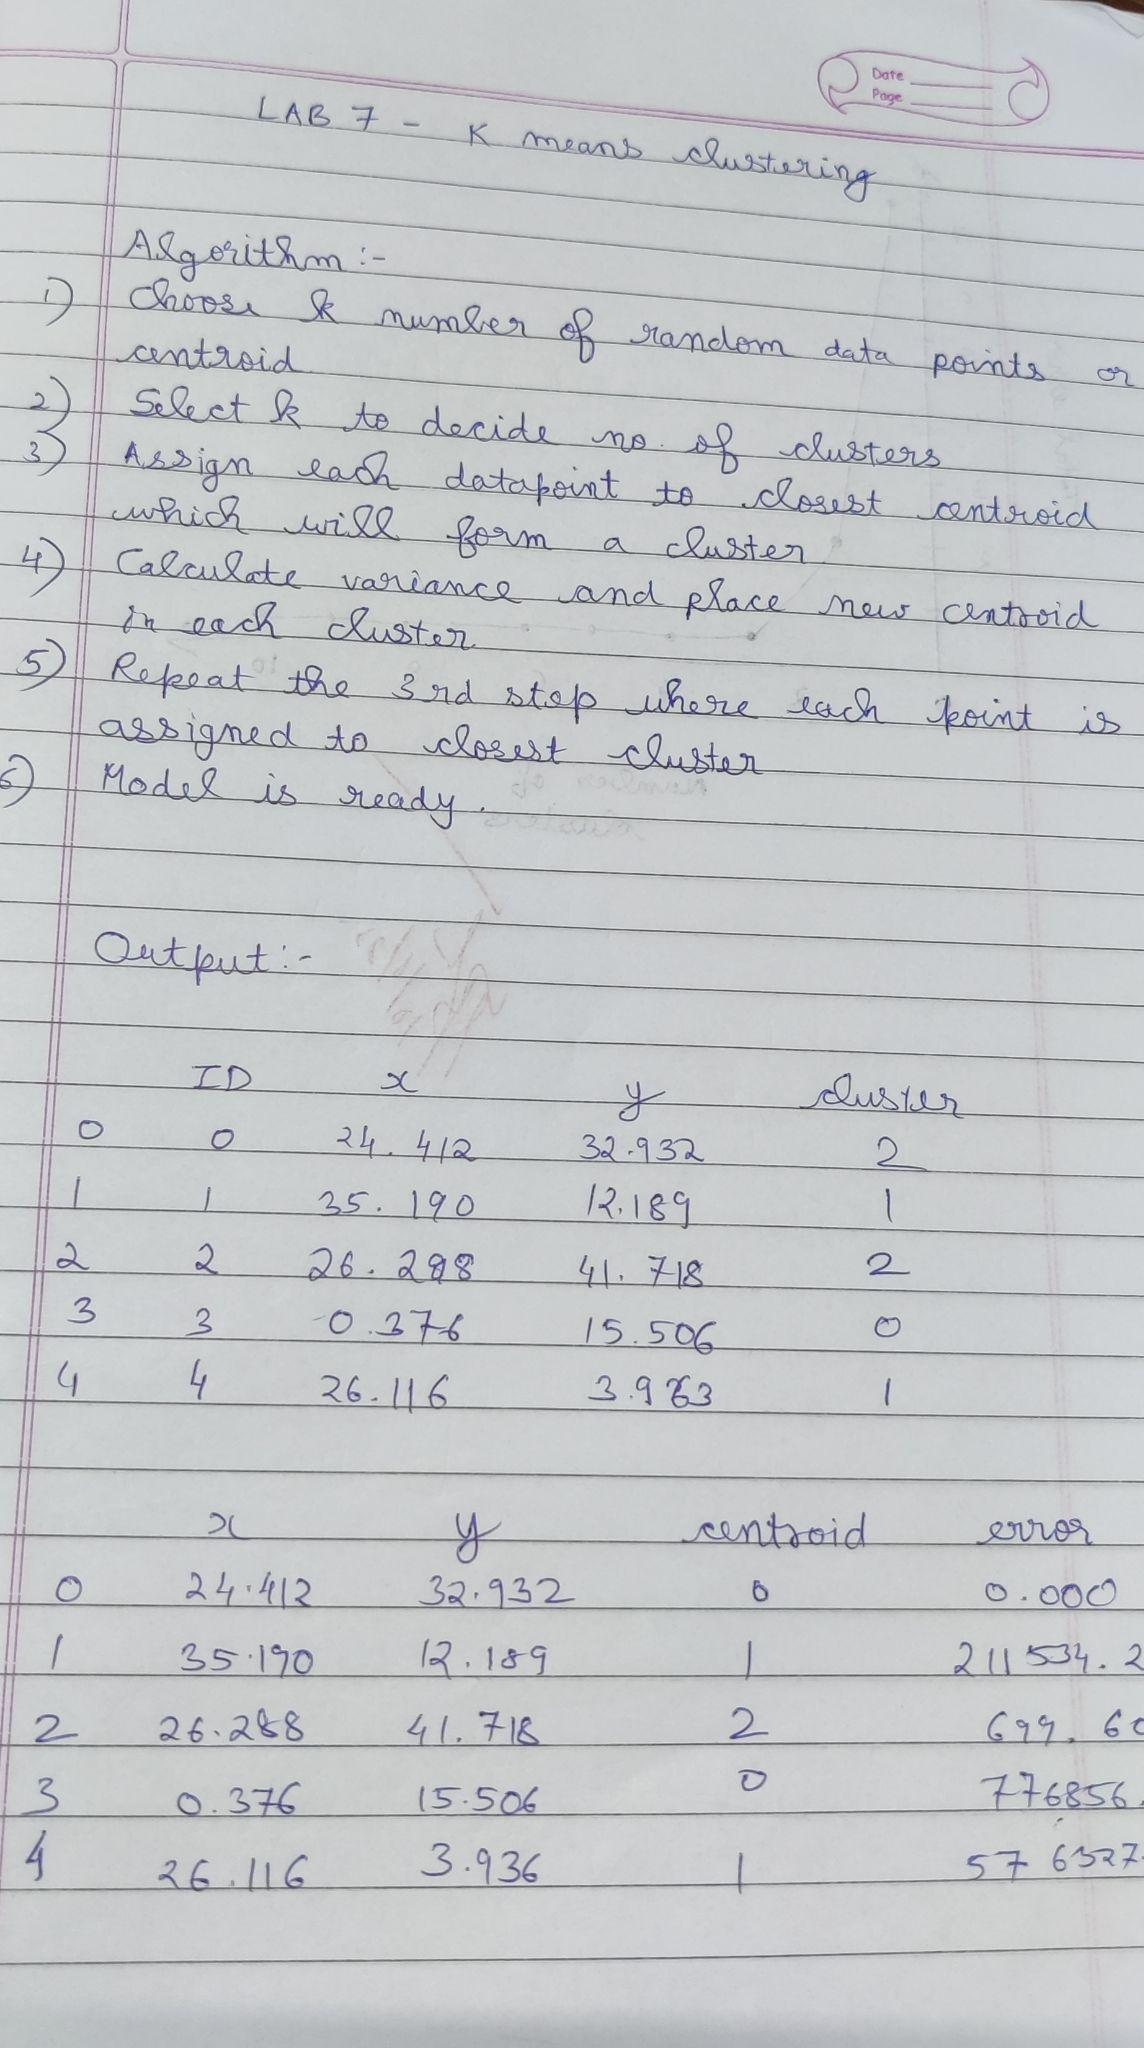 Date
Page
LAB 7 - K means clustering
Algorithm :-
1) Choose k number of random data points or
centroid
2) Select k to decide no. of clusters
3) Assign each datapoint to closest centroid
which will form a cluster
4) Calculate variance and place new centroid
in each cluster
5) Repeat the 3rd step where each point is
assigned to closest cluster
6) Model is ready.
Output :-
ID x y cluster
0 0 24.412 32.932 2
1 1 35.190 12.189 1
2 2 26.288 41.718 2
3 3 0.376 15.506 0
4 4 26.116 3.963 1
x y centroid error
0 24.412 32.932 0 0.000
1 35.190 12.189 1 211534.2
2 26.288 41.718 2 699.60
3 0.376 15.506 0 776856.
4 26.116 3.936 1 576327.